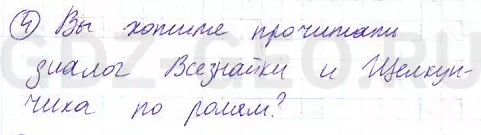 ④ Вы хотите прочитать
диалог Всезнайки и Щелкун-
чика по ролям?